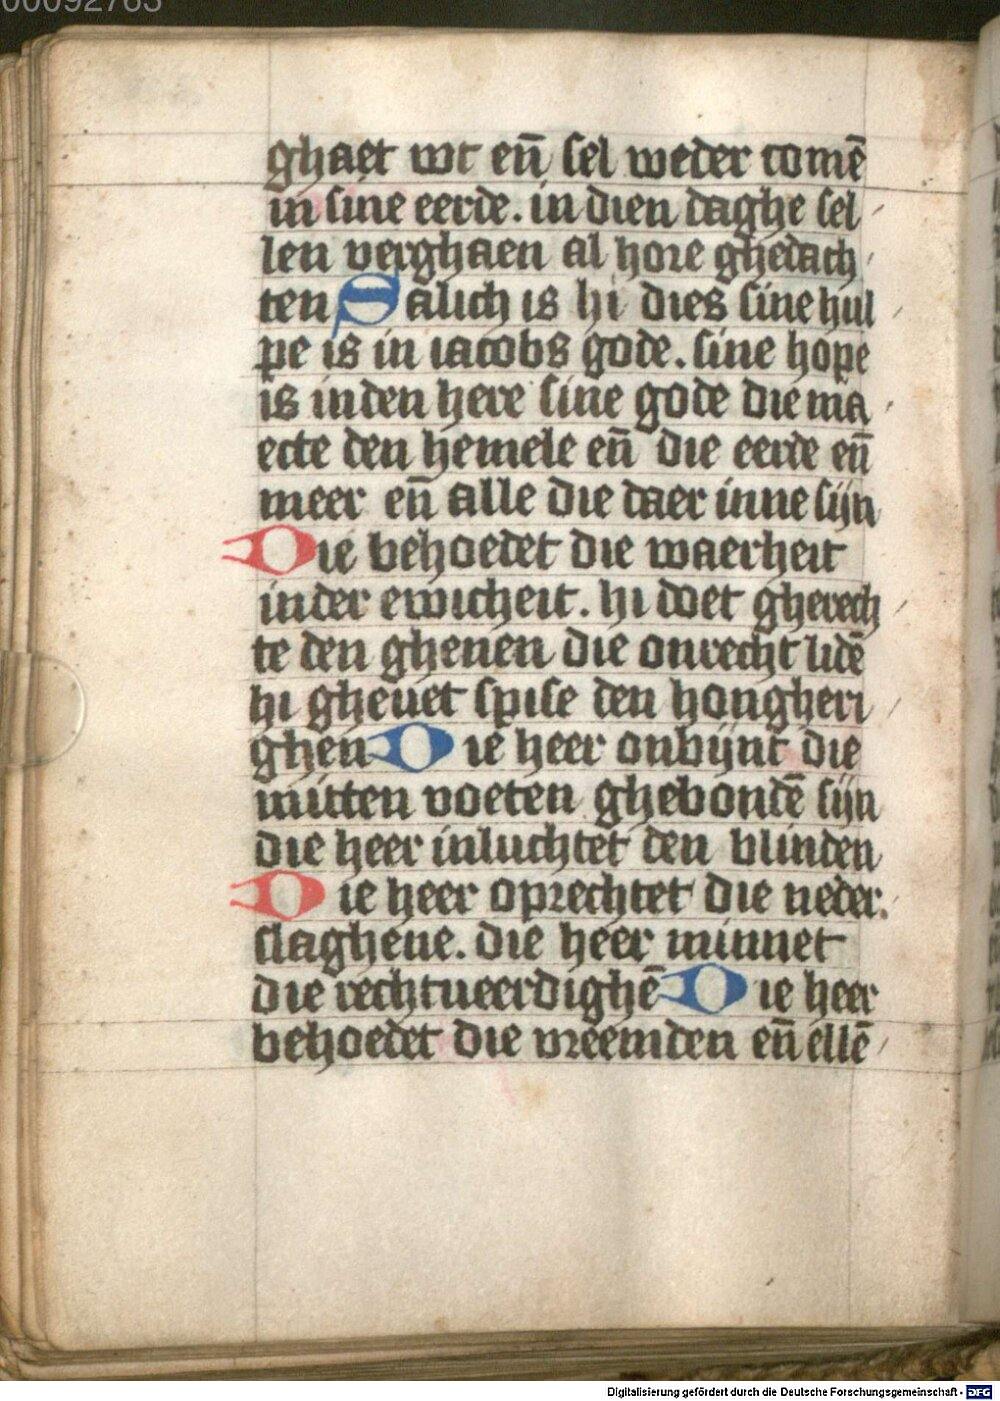 00092763
ghaet wt eñ sel weder comē
in sine eerde. in dien daghe sel
len verghaen al hore ghedach
ten Salich is hi dies sine hul
pe is in iacobs gode. sine hope
is in den here sine gode die ma
ecte den hemele eñ die eerde eñ
meer eñ alle die daer inne sijn
Die behoedet die waerheit
in der ewicheit. hi doet gherech
te den ghenen die onrecht lidē
hi gheuet spise den hongheri
ghen Die heer onbijnt die
mitten voeten ghebondē sijn
die heer inluchtet den blinden
Die heer oprechtet die neder
slaghene. die heer minnet
die rechtueerdighē Die heer
behoedet die vreemden eñ ellē
Digitalisierung gefördert durch die Deutsche Forschungsgemeinschaft - DFG